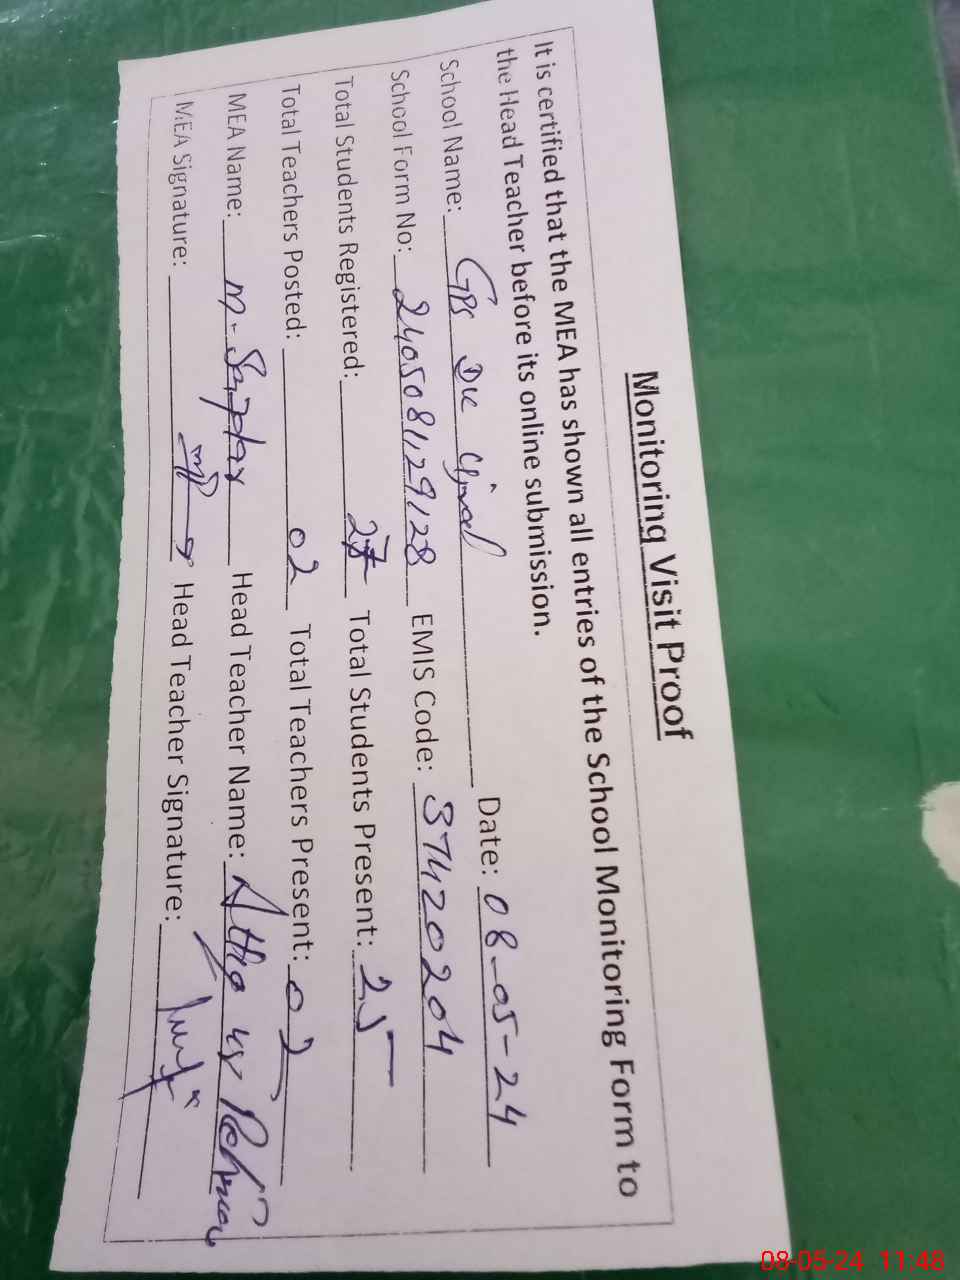 Monitoring Visit Proof
It is certified that the MEA has shown all entries of the School Monitoring Form to
the Head Teacher before its online submission.
School Name: GPS Date: 08-05-24
School Form No: EMIS Code: 37420204
Total Students Registered: Total Students Present: 25
Total Teachers Posted: 02 Total Teachers Present: 02
MEA Name: M. Head Teacher Name:
MEA Signature: Head Teacher Signature:
08-05-24 11:48